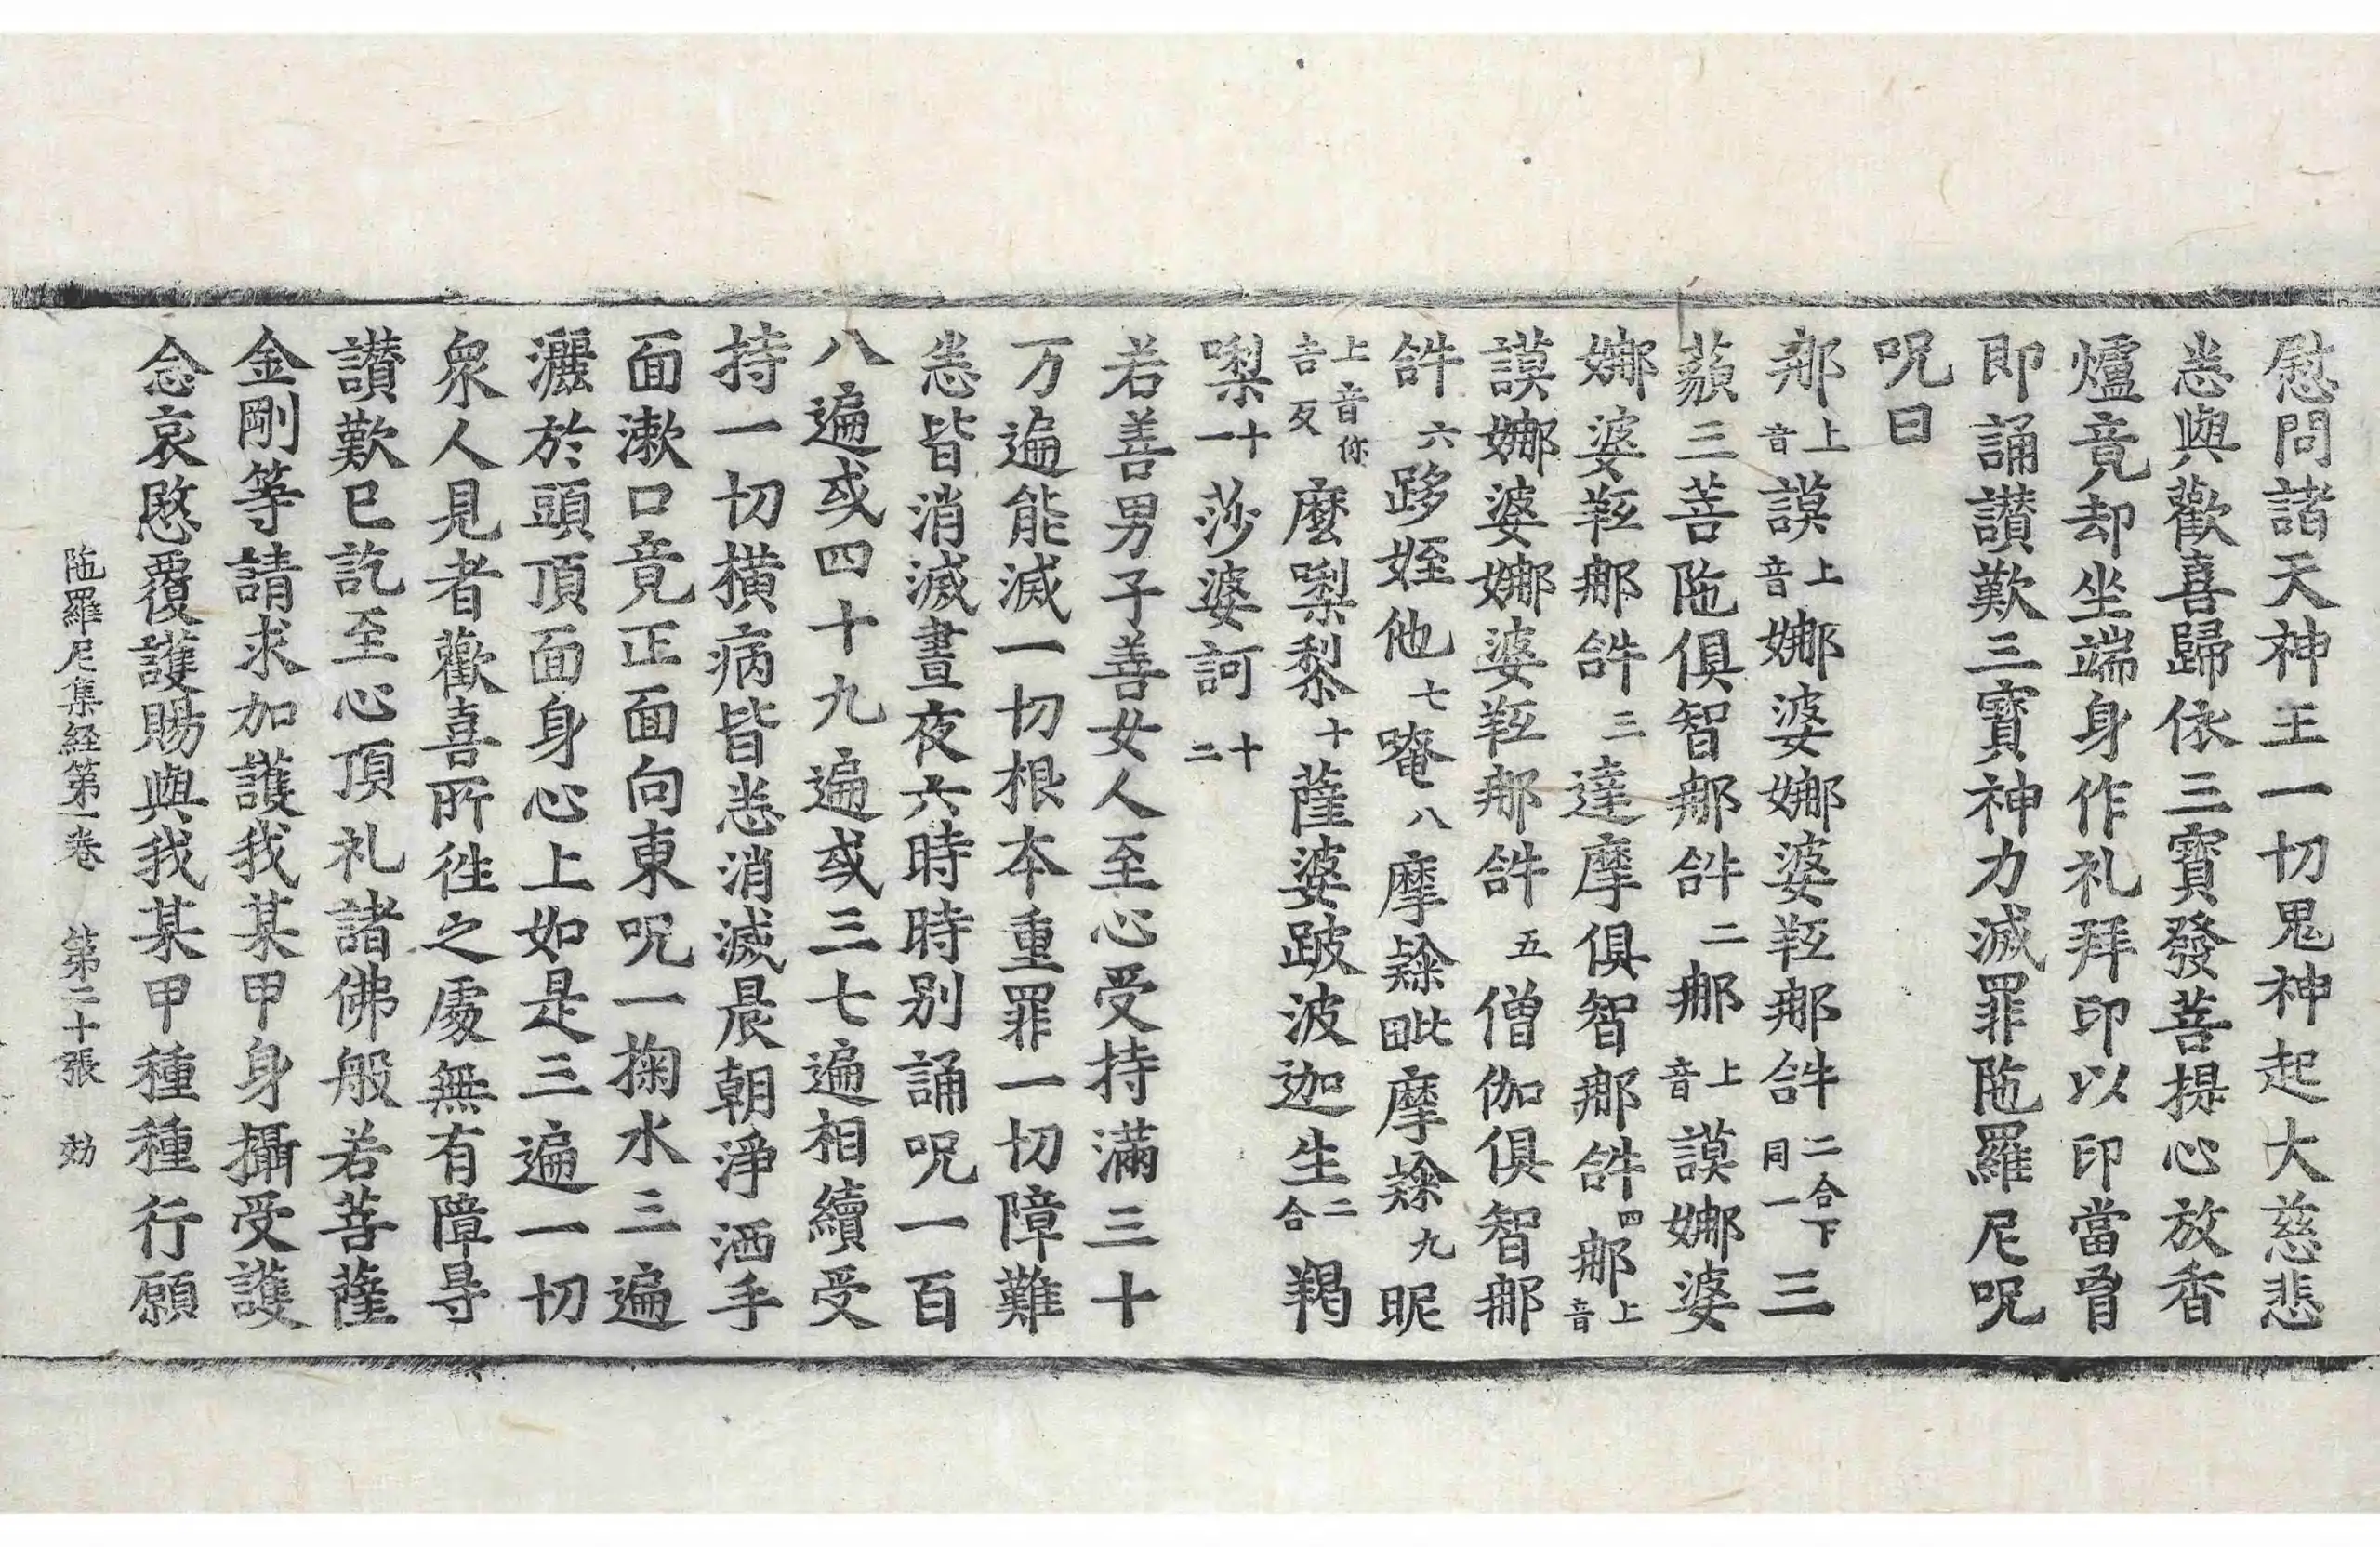 慰問諸天神王一切鬼神起大慈悲
悉與歡喜歸依三寶發菩提心放香
爐竟却坐端身作礼拜印以印當𦙄
即誦讃歎三寶神力滅罪陁羅尼呪
呪曰
那上音謨上音娜婆娜婆羟那𤙖二合下同一三
藐三菩陁俱智那𤙖二那上音謨娜婆
娜婆羟那𤙖三達摩俱智那𤙖四那上音
謨娜婆娜婆羟那𤙖五僧伽俱智那
𤙖六跢姪他七唵八摩𨽁毗摩𨽁九昵
上音你吉反麼㗚黎十薩婆跛波迦生二合羯
㗚十一莎婆訶十二
若善男子善女人至心受持滿三十
万遍能滅一切根本重罪一切障難
悉皆消滅晝夜六時時別誦呪一百
八遍或四十九遍或三七遍相續受
持一切橫病皆悉消滅晨朝淨洒手
面漱口竟正面向東呪一掬水三遍
灑於頭頂面身心上如是三遍一切
衆人見者歡喜所徃之處無有障㝵
讃歎已訖至心頂礼諸佛般若菩薩
金剛等請求加護我某甲身攝受護
念哀愍覆護賜與我某甲種種行願
陁羅尼集経第一卷 第二十張 効